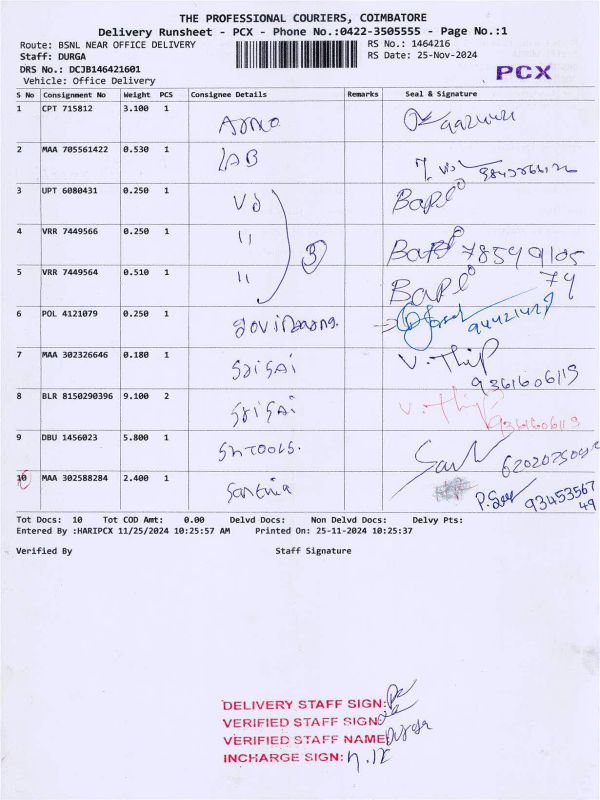 THE PROFESSIONAL COURIERS, COIMBATORE
Delivery Runsheet - PCX - Phone No.:0422-3505555 - Page No.:1
Route: BSNL NEAR OFFICE DELIVERY RS No.: 1464216
Staff: DURGA RS Date: 25-Nov-2024
DRS No.: DCJB146421601
Vehicle: Office Delivery PCX
S No Consignment No Weight PCS Consignee Details Remarks Seal & Signature
1 CPT 715812 3.100 1
2 MAA 705561422 0.530 1 LAB
3 UPT 6080431 0.250 1 Vo
4 VRR 7449566 0.250 1 11 3 78549105
5 VRR 7449564 0.510 1 11 74
6 POL 4121079 0.250 1
7 MAA 302326646 0.180 1 SaiSAi V. Thip 9361606119
8 BLR 8150290396 9.100 2 SaiSAi V. Thip 9361606119
9 DBU 1456023 5.800 1 SnTOOLS.
10 MAA 302588284 2.400 1 9345356749
Tot Docs: 10 Tot COD Amt: 0.00 Delvd Docs: Non Delvd Docs: Delvy Pts:
Entered By :HARIPCX 11/25/2024 10:25:57 AM Printed On: 25-11-2024 10:25:37
Verified By Staff Signature
DELIVERY STAFF SIGN:
VERIFIED STAFF SIGN:
VERIFIED STAFF NAME: Durga
INCHARGE SIGN: